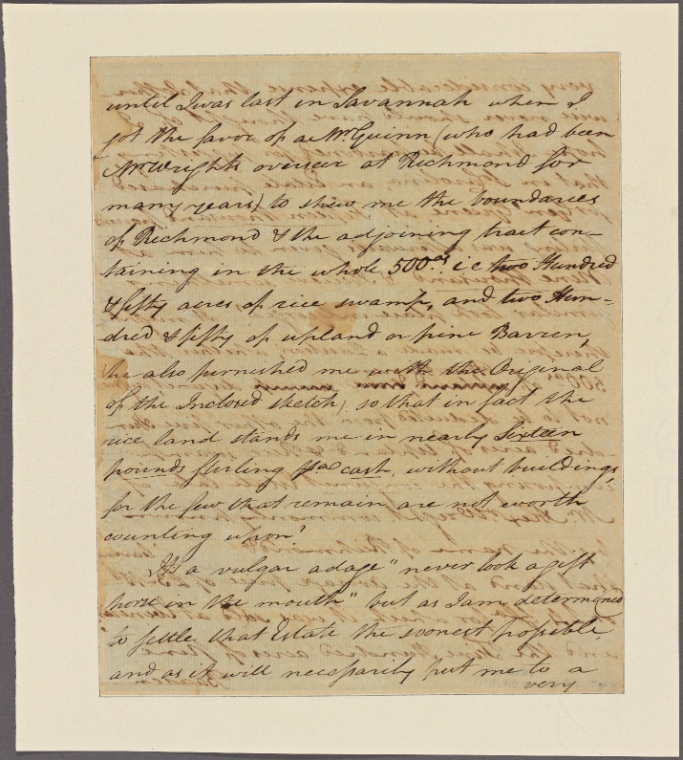 until I was last in Savannah when I
got the favor of a Mr. Guinn (who had been
Mr. Wrights overseer at Richmond for
many years) to shew me the boundaries
of Richmond & the adjoining tract con-
taining in the whole 500 as. i e two Hundred
& fifty acres of rice swamp, and two Hun-
dred & fifty of upland or pine Barren,
he also furnished me with the Original
of the Inclosed sketch, so that in fact the
rice land stands me in nearly Sixteen
pounds sterling cash, without buildings,
for the few that remain are not worth
counting upon.
Its a vulgar adage "never look a gift
horse in the mouth" but as I am determined
to settle that Estate the soonest possible
and as it will necessarily put me to a
very